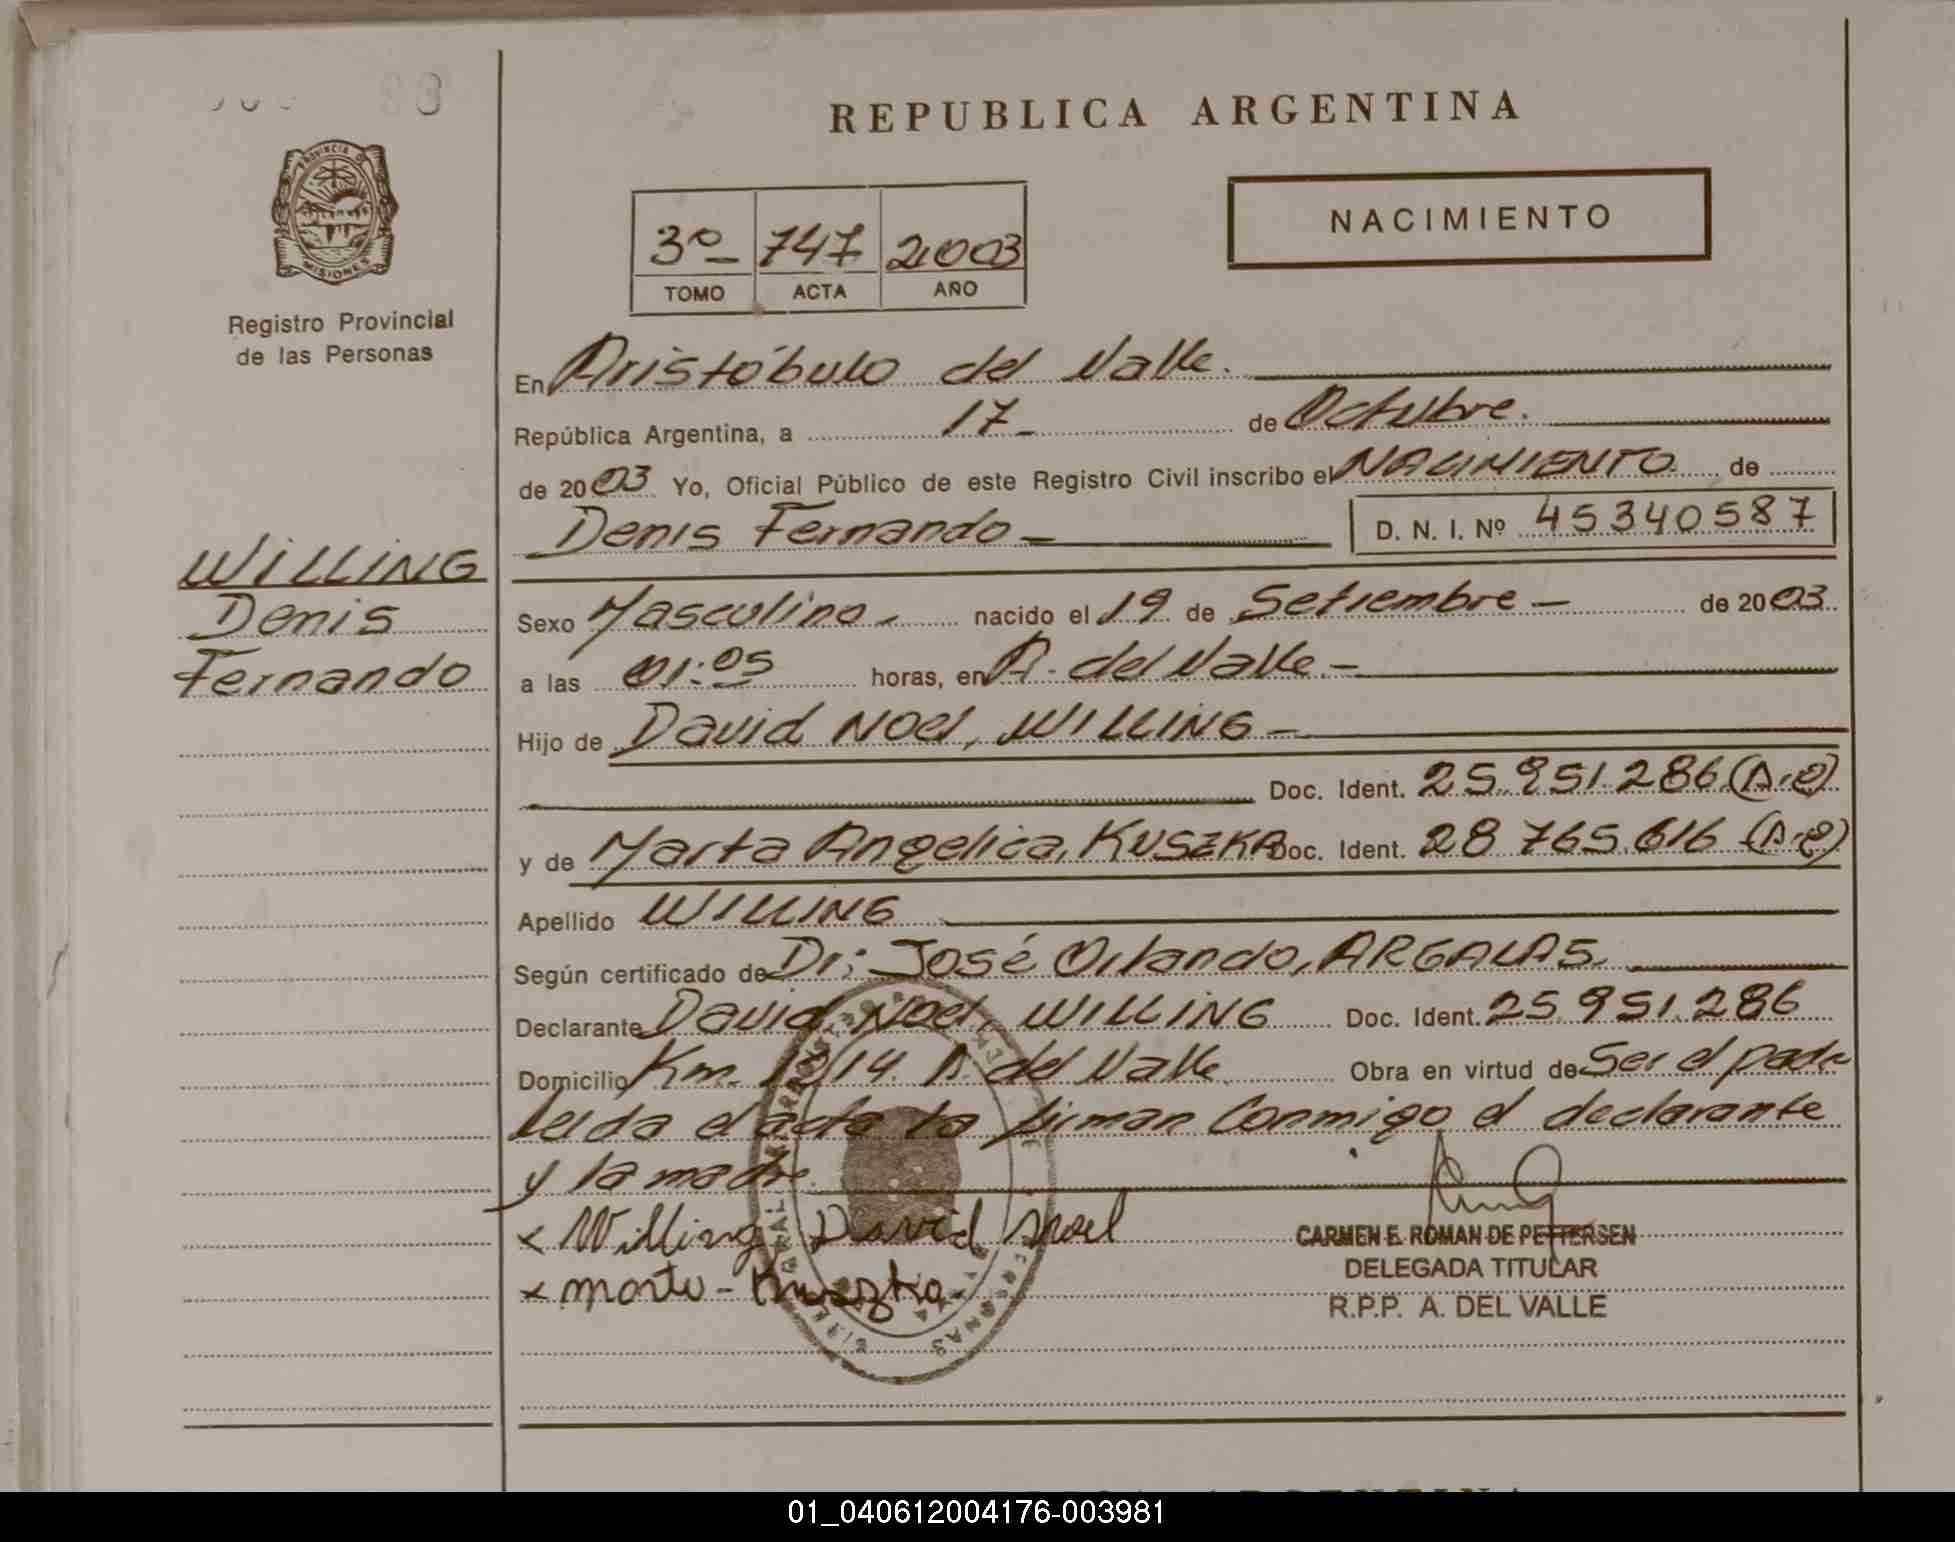 REPUBLICA ARGENTINA
PROVINCIA DE
MISIONES
Registro Provincial
de las Personas
3º 747 2003
TOMO ACTA AÑO
NACIMIENTO
En Aristóbulo del Valle.
República Argentina, a 17 de Octubre.
de 2003 Yo, Oficial Público de este Registro Civil inscribo el NACIMIENTO de
Denis Fernando D. N. I. Nº 45340587
WILLING
Denis
Fernando
Sexo Masculino nacido el 19 de Setiembre de 2003
a las 01:05 horas, en A. del Valle.
Hijo de David Noel, WILLING
Doc. Ident. 25.951.286 (A.2)
y de Marta Angelica, KUSZKA Doc. Ident. 28 765.616 (A.2)
Apellido WILLING
Según certificado de Dr: José Orlando, ARGALAS.
Declarante David Noel, WILLING Doc. Ident. 25.951.286
Domicilio Km. A. del Valle. Obra en virtud de Ser el padre
Leida el acta la firman conmigo el declarante
y la madre.
x Willing David Noel
x Marta - Kuszka.
CARMEN E. ROMAN DE PETTERSEN
DELEGADA TITULAR
R.P.P. A. DEL VALLE
01_040612004176-003981